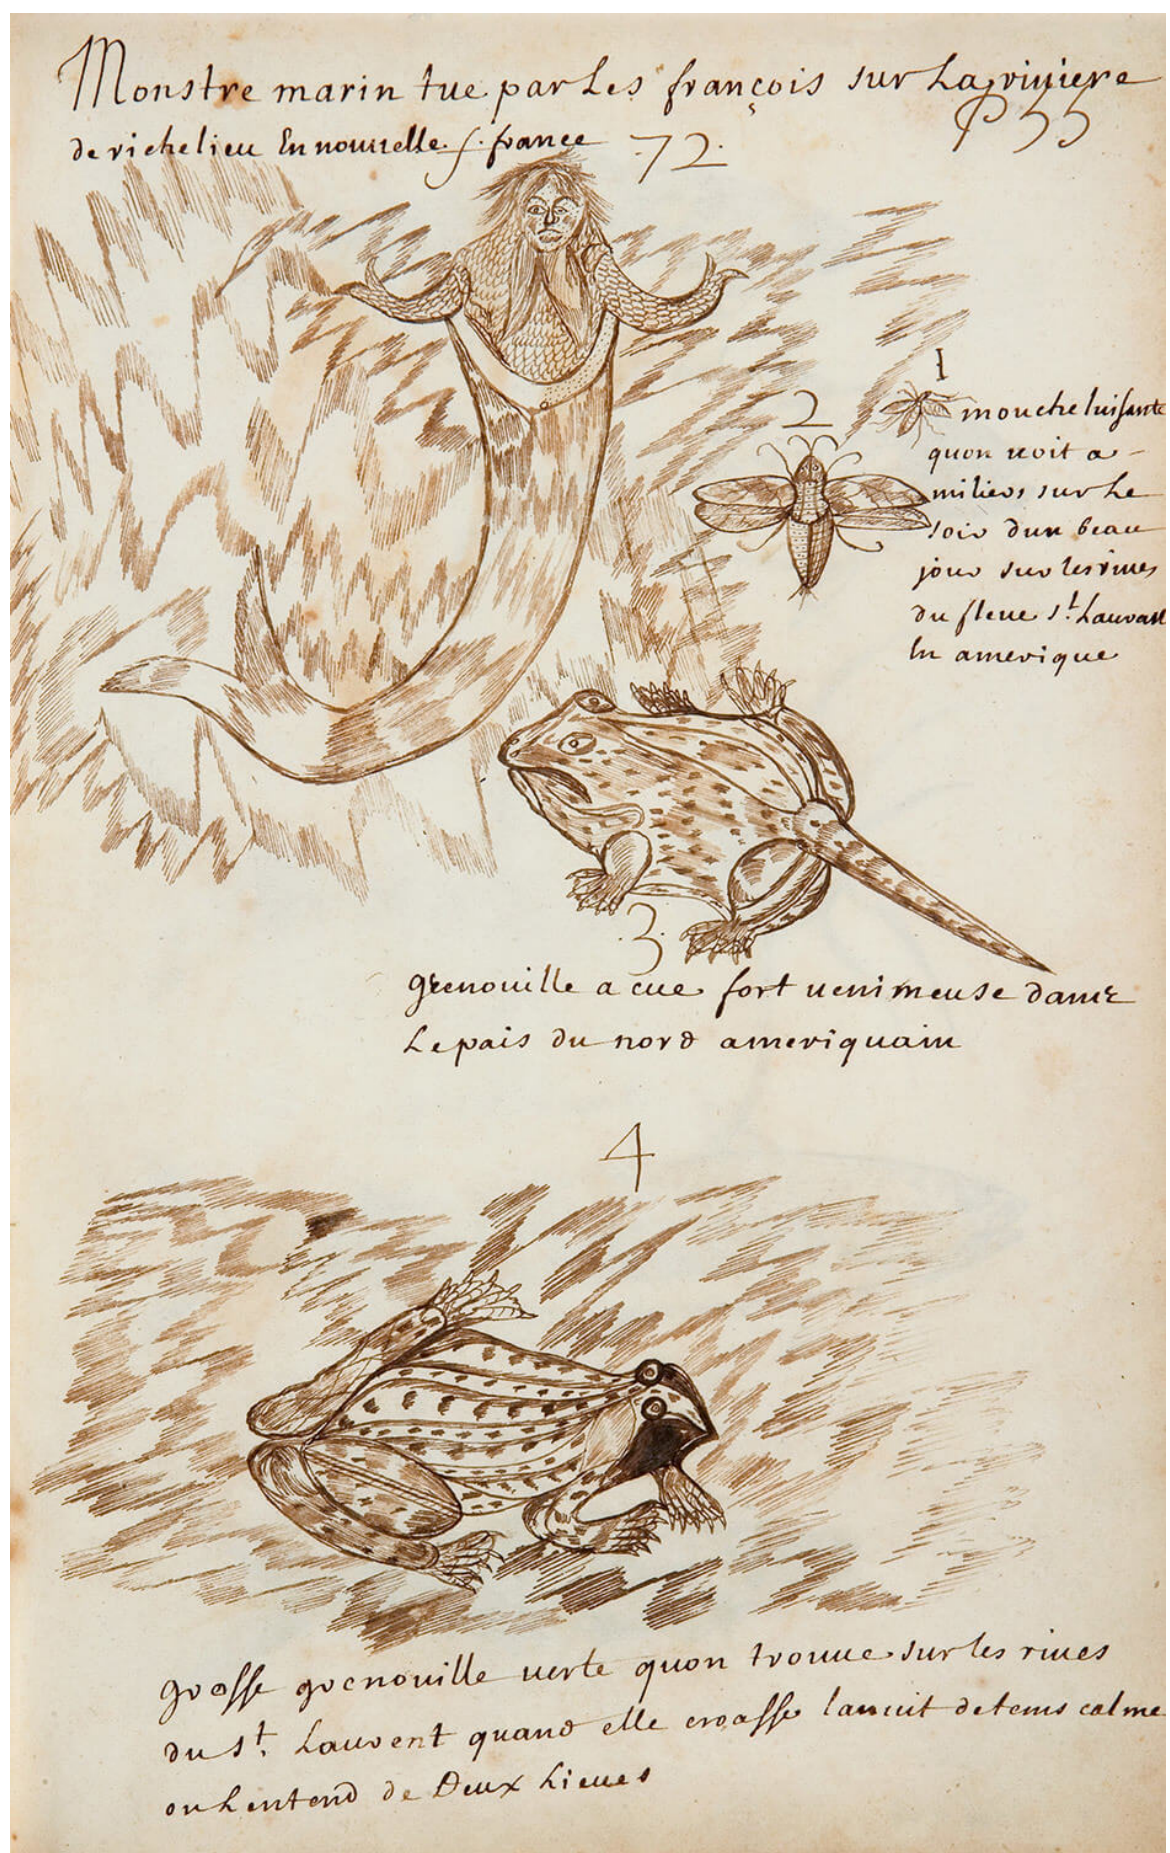 Monstre marin tue par Les françois sur La riuiere
de richelieu En nouuelle france 72.
P 55
1
mouche luisante
quon uoit a
miliers sur Le
soir dun beau
jour sur les riues
du fleuue st. Lauvant
En amerique
2
3.
grenouille a cue fort uenimeuse dans
Le pais du nord ameriquain
4
grosse grenouille uerte quon trouue sur les riues
du st. Laurent quand elle croasse la nuit de tems calme
on Lentend de Deux Lieues